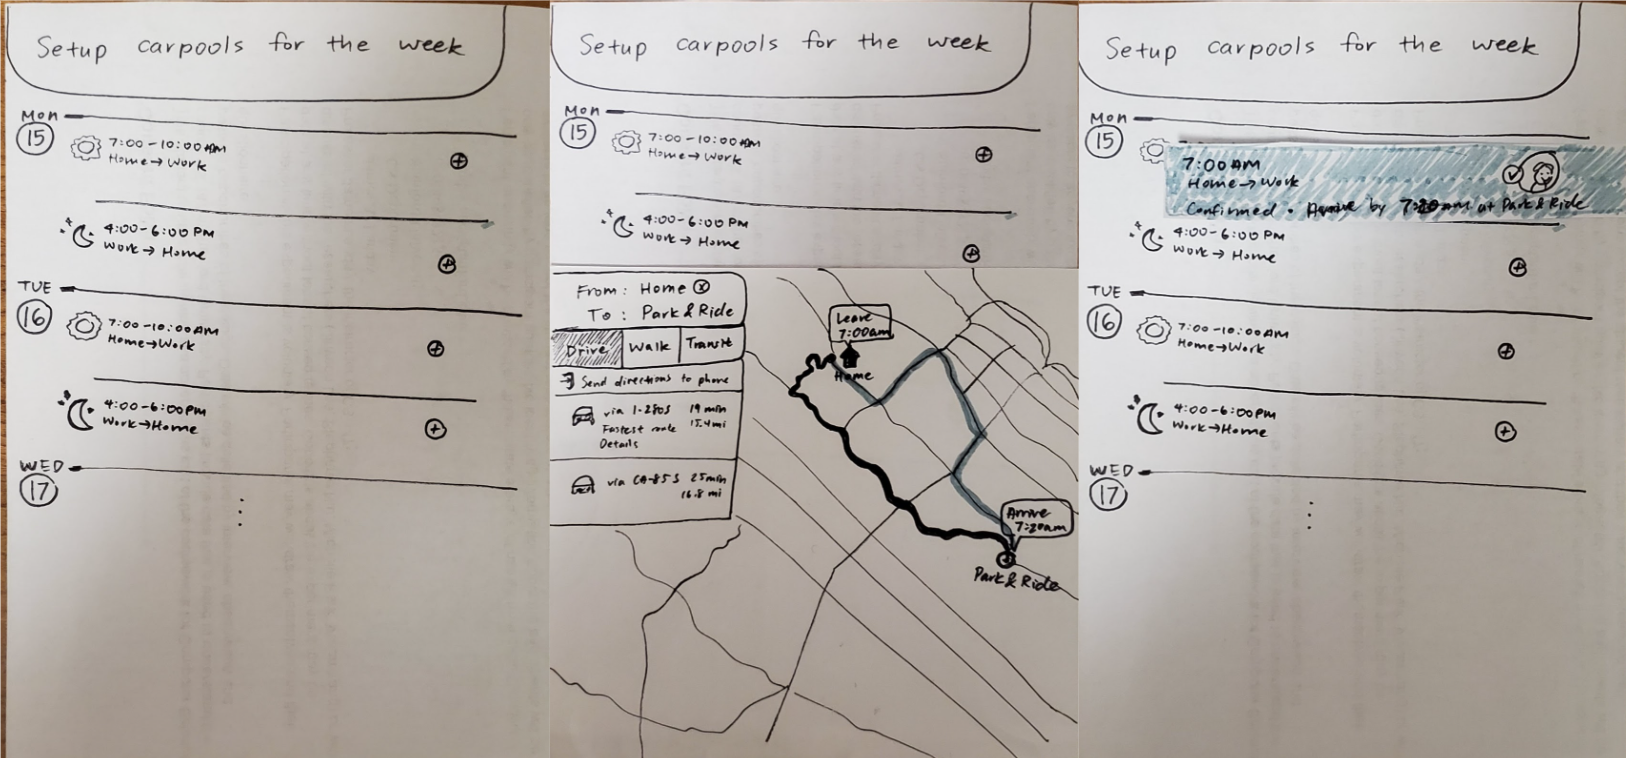 Setup carpools for the week
MON
15
7:00-10:00AM
Home→Work
4:00-6:00PM
Work→Home
TUE
16
7:00-10:00AM
Home→Work
4:00-6:00PM
Work→Home
WED
17
Setup carpools for the week
MON
15
7:00-10:00AM
Home→Work
4:00-6:00PM
Work→Home
From: Home
To: Park & Ride
Drive Walk Transit
Send directions to phone
via I-280S 19 min
Fastest route 15.4mi
Details
via CA-85S 25min
16.8 mi
Leave
7:00am
Home
Arrive
7:20am
Park & Ride
Setup carpools for the week
MON
15
7:00AM
Home→Work
Confirmed • Arrive by 7:20am at Park & Ride
4:00-6:00PM
Work→Home
TUE
16
7:00-10:00AM
Home→Work
4:00-6:00PM
Work→Home
WED
17